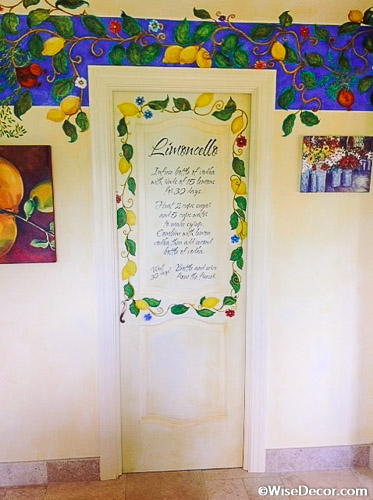 Limoncello
Infuse bottle of vodka
with rinds of 15 lemons
for 30 days.
Heat 2 cups sugar
and 5 cups water
to make syrup.
Combine with lemon
vodka, then add second
bottle of vodka.
Wait Bottle and store
30 days! from the
©WiseDecor.com